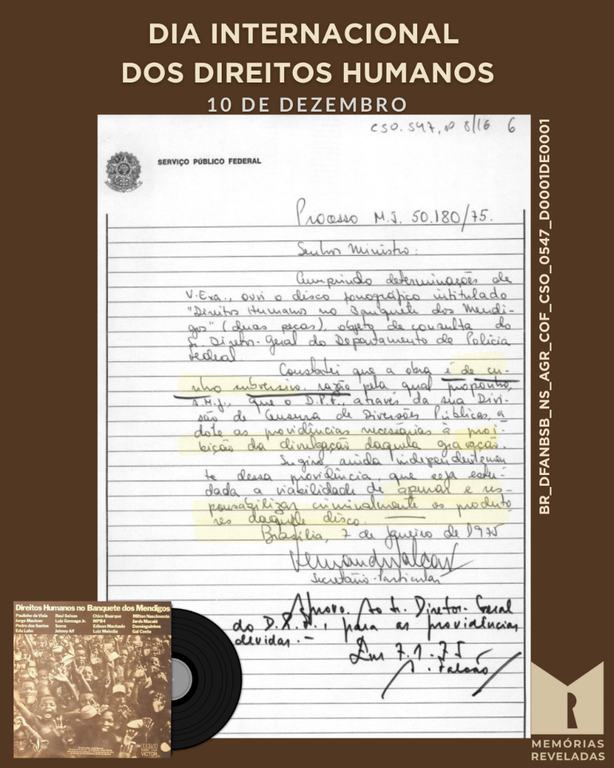 DIA INTERNACIONAL
DOS DIREITOS HUMANOS
10 DE DEZEMBRO
CSO.547, nº 8/16 6
SERVIÇO PÚBLICO FEDERAL
Processo M.J. 50.180/75.
Senhor Ministro:
Cumprindo determinações de
V.Exa., ouvi o disco fonográfico intitulado
"Direitos Humanos no Banquete dos Mendi-
gos" (duas peças), objeto de consulta do
Sr. Diretor-Geral do Departamento de Polícia
Federal.
Constatei que a obra é de cu-
nho subversivo, razão pela qual proponho,
que o D.P.F., através da sua Divi-
são de Censura de Diversões Públicas, a-
dote as providências necessárias à proi-
bição da divulgação daquela gravação.
Sugiro, ainda, independentemen-
te dessa providência, que seja estu-
dada a viabilidade de apenar e res-
ponsabilizar criminalmente os produto-
res daquele disco.
Brasília, 7 de janeiro de 1975
Secretário-Particular
Aprovo. Ao Sr. Diretor-Geral
do D.P.F., para as providências
devidas.-
Em 7.1.75
A. Falcão
BR_DFANBSB_NS_AGR_COF_CSO_0547_D0001DE0001
Direitos Humanos no Banquete dos Mendigos
Paulinho da Viola
Jorge Mautner
Pedro dos Santos
Edu Lobo
Raul Seixas
Luiz Gonzaga Jr.
Soma
Johnny Alf
Chico Buarque
MPB4
Edison Machado
Luiz Melodia
Milton Nascimento
Jards Macalé
Dominguinhos
Gal Costa
R
MEMÓRIAS
REVELADAS